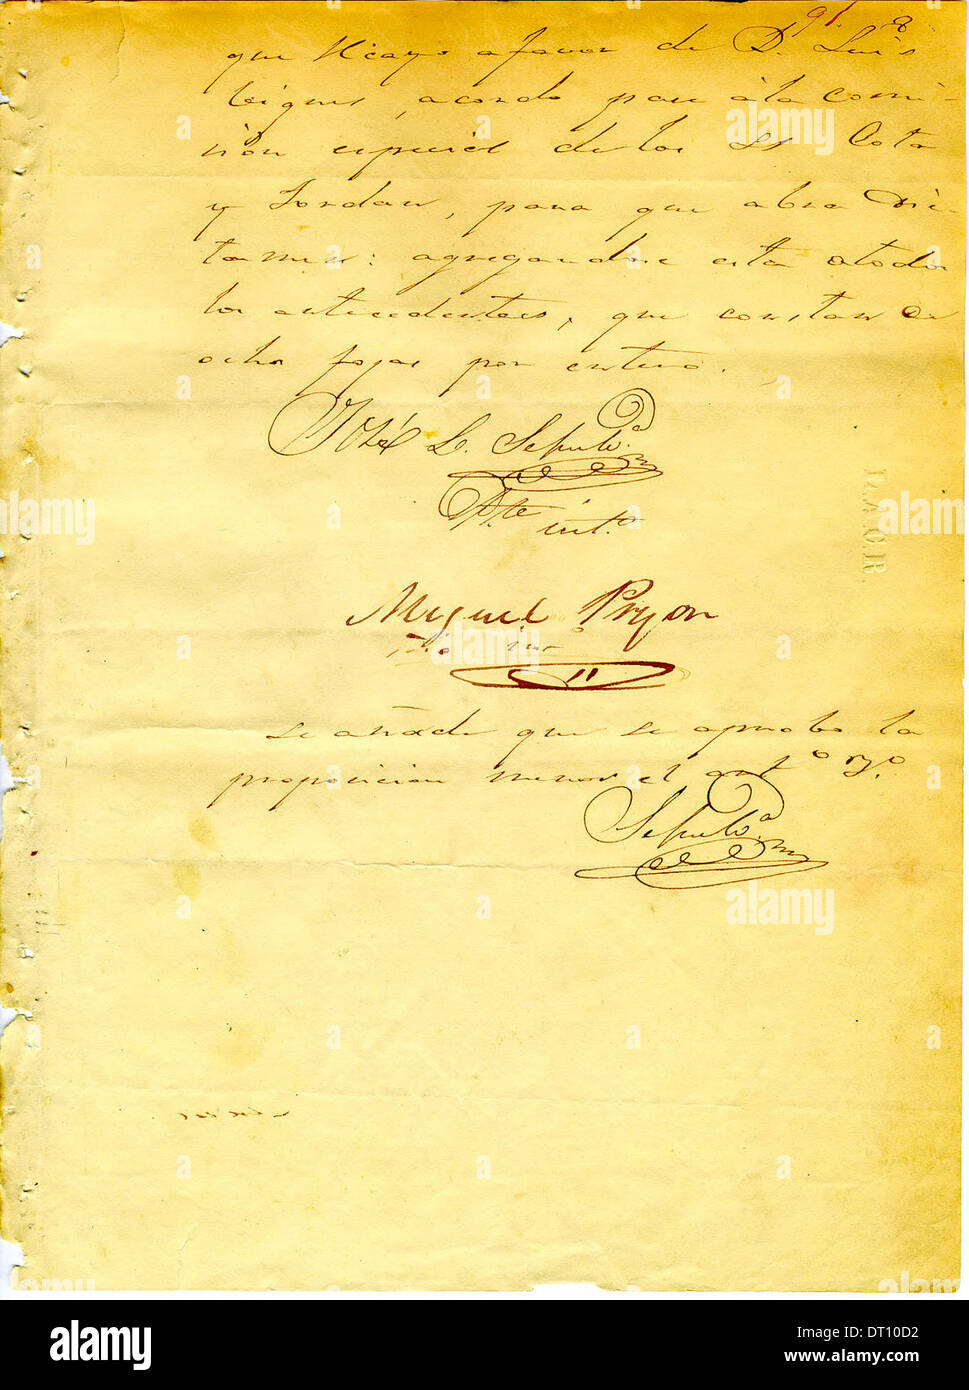 91. 8
que recayo a favor de D. Luis
Vignes, acordo pase à la comi-
sion especial de los SS Cota
y Jordan, para que abra Dic-
tamen: agregandose esta atodos
los antecedentes, que constan de
ocho fojas por entero.
José L. Sepulvª
Pte. intº
Miguel Pryor
se añade que se aprobo la
proposicion menos el artº 7º
Sepulvª
P.A.C.R.
alamy
DT10D2
www.alamy.com